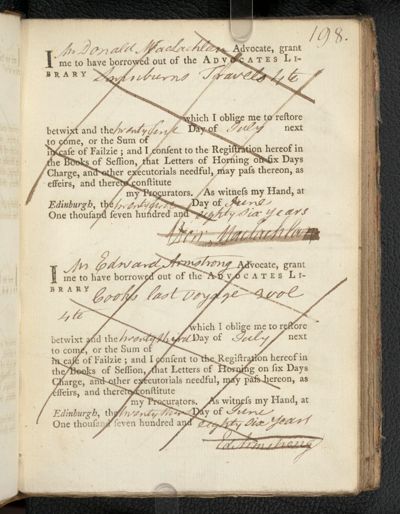 198.
I Mr Donald Maclachlan Advocate, grant
me to have borrowed out of the ADVOCATES LI-
BRARY Swinburns Travels 4to
which I oblige me to restore
betwixt and the Day of July next
to come, or the Sum of
in case of Failzie; and I consent to the Registration hereof in
the Books of Session, that Letters of Horning on six Days
Charge, and other executorials needful, may pass thereon, as
effeirs, and thereto constitute
my Procurators. As witness my Hand, at
Edinburgh, the Day of June
One thousand seven hundred and eighty six years
Maclachlan
I Mr Edward Armstrong Advocate, grant
me to have borrowed out of the ADVOCATES LI-
BRARY Cooks last voyage 2 vol
4to
which I oblige me to restore
betwixt and the twenty third Day of July next
to come, or the Sum of
in case of Failzie; and I consent to the Registration hereof in
the Books of Session, that Letters of Horning on six Days
Charge, and other executorials needful, may pass hereon, as
effeirs, and thereto constitute
my Procurators. As witness my Hand, at
Edinburgh, the Day of June
One thousand seven hundred and eighty six years
Ed. Armstrong